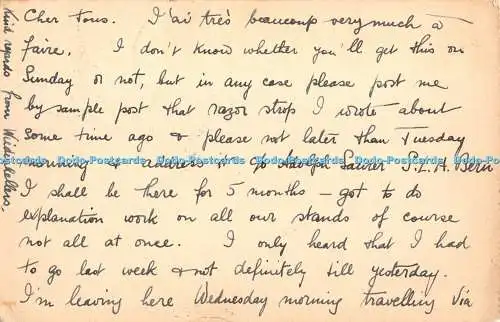 Cher Tous. J'ai très beaucoup very much à
faire. I don't know whether you'll get this on
Sunday or not, but in any case please post me
by sample post that razor strop I wrote about
some time ago & please not later than Tuesday
morning & address it c/o Adolph Saurer S.L.A. Bern
I shall be here for 5 months - got to do
explanation work on all our stands of course
not all at once. I only heard that I had
to go last week & not definitely till yesterday.
I'm leaving here Wednesday morning travelling via
Kind regards from Wiedenkellers.
Dodo-Postcards Dodo-Postcards Dodo-Postcards Dodo-Postcards Dodo-Postcards